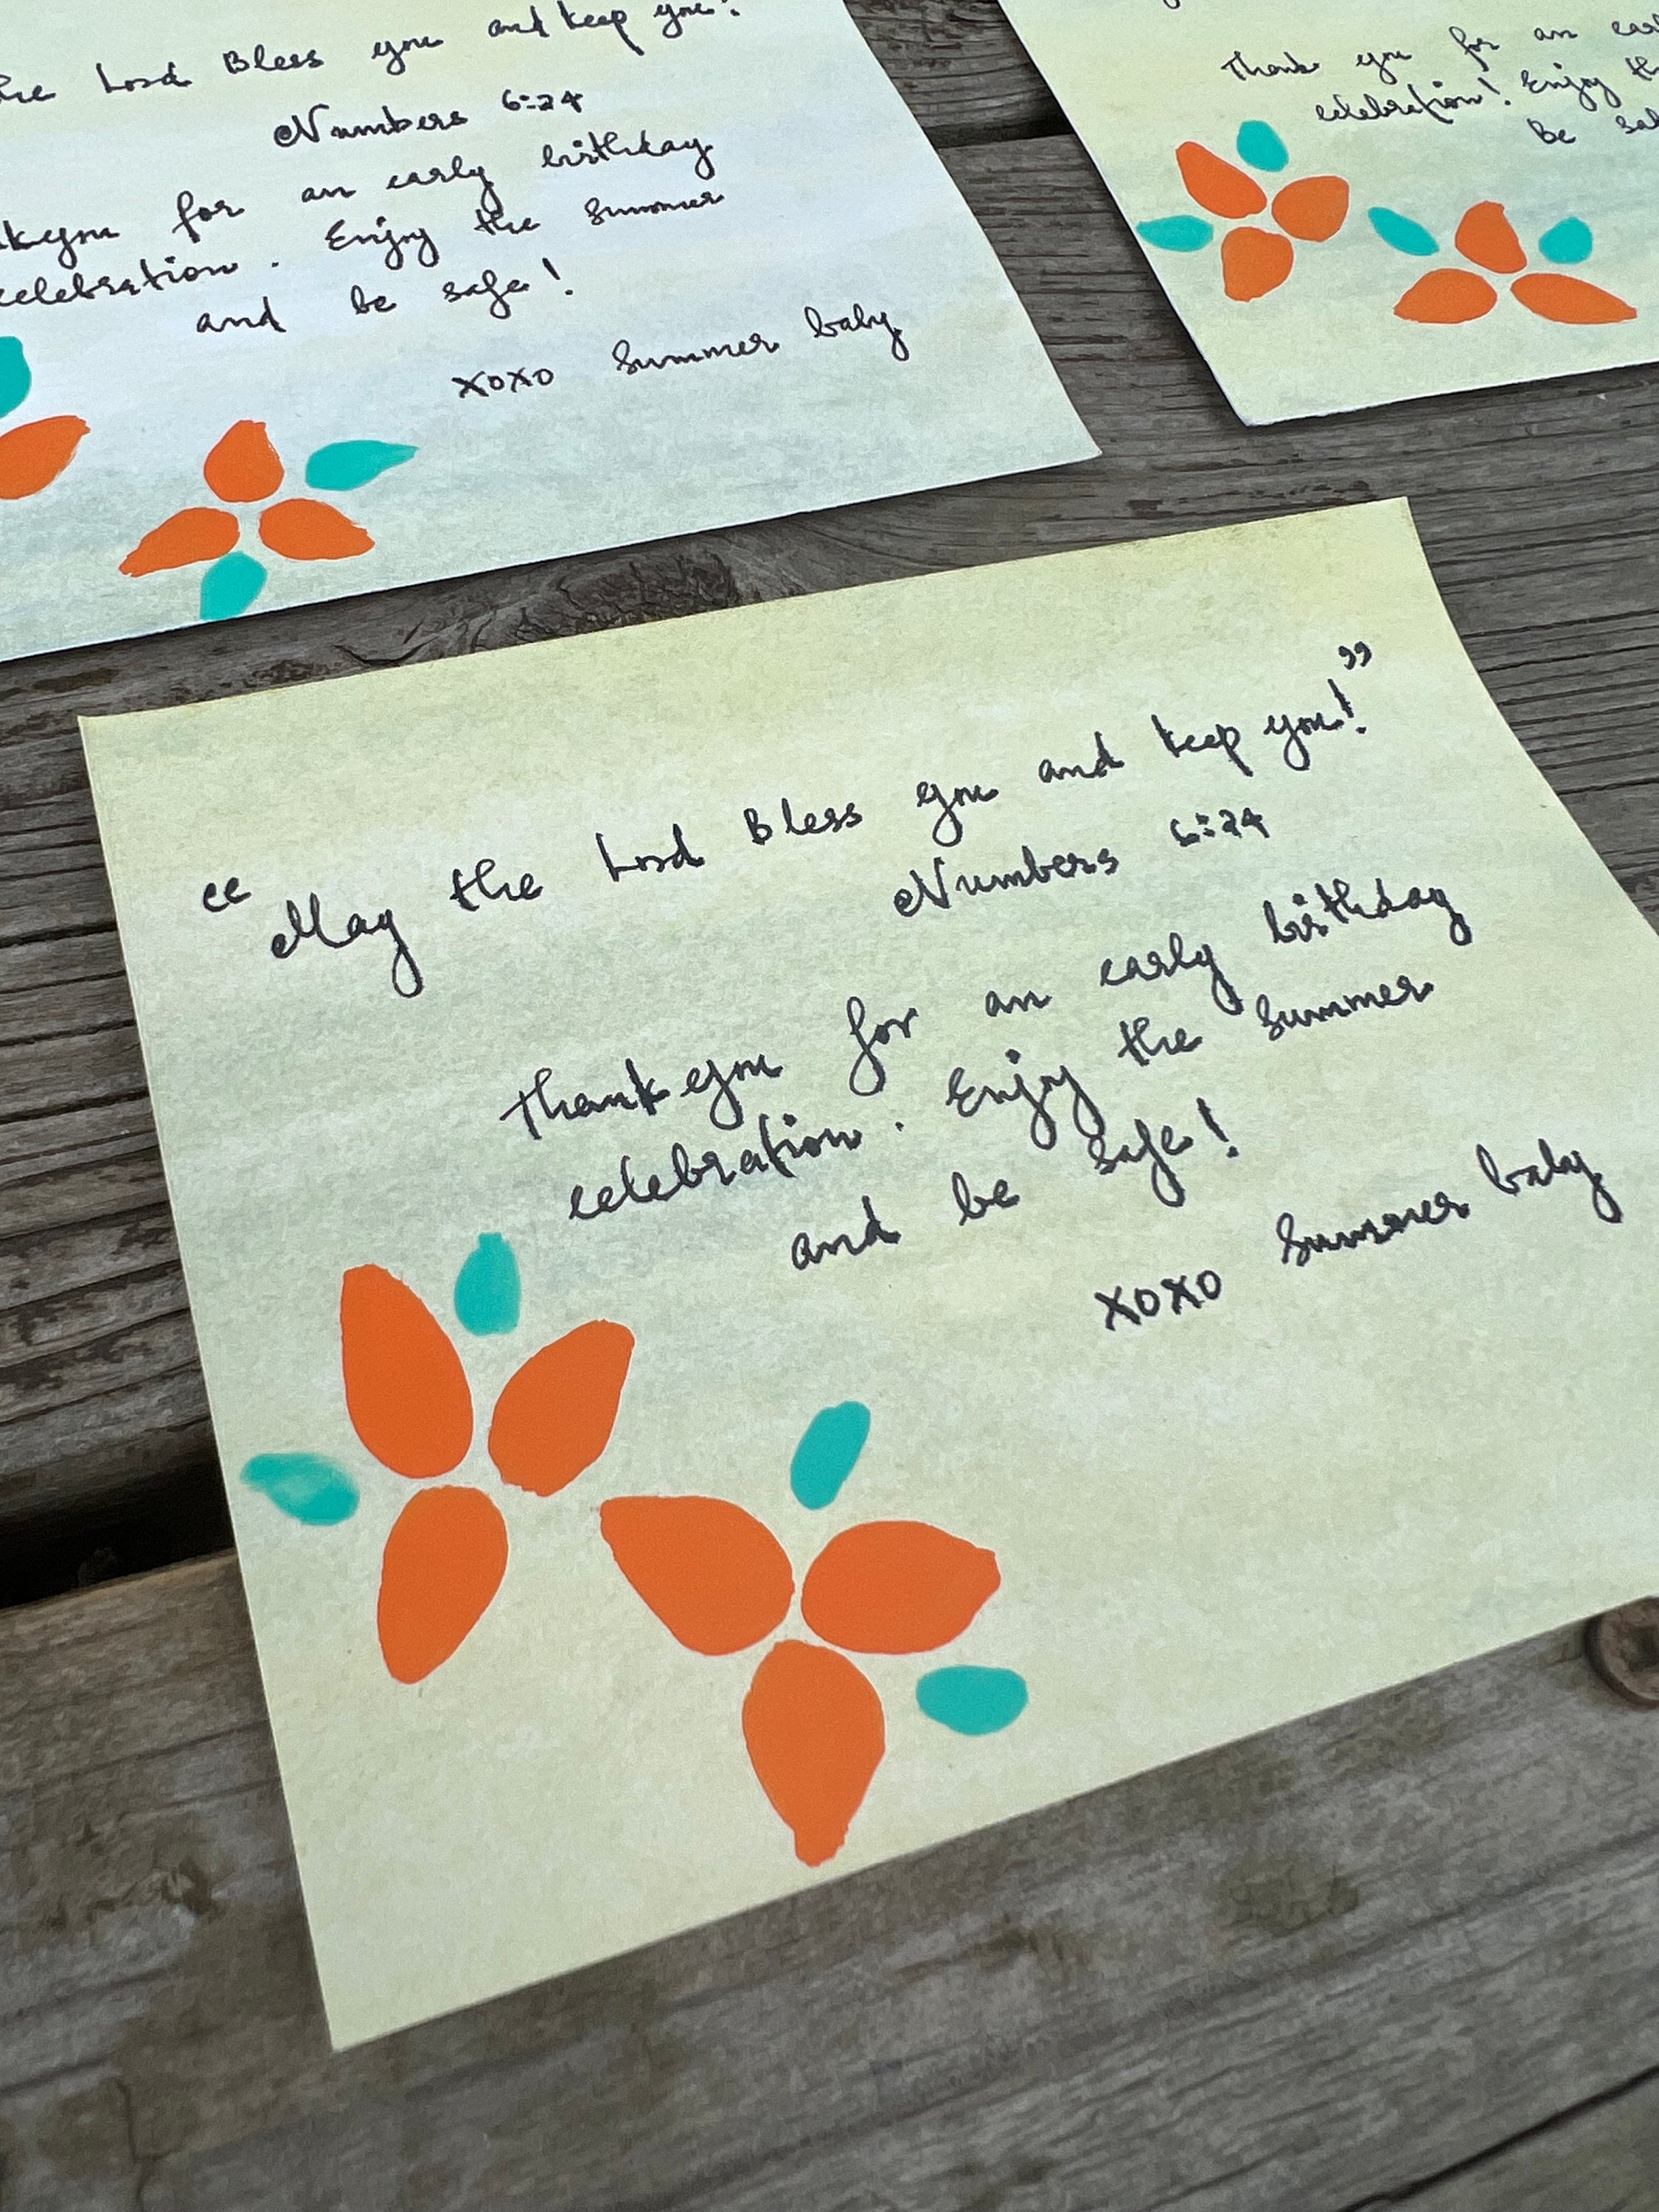 the Lord Bless you and keep you!
Numbers 6:24
for an early birthday
celebration. Enjoy the summer
and be safe!
xoxo Summer baby
Thank you for an
celebration! Enjoy
Be
"May the Lord Bless you and keep you!"
Numbers 6:24
Thank you for an early birthday
celebration. Enjoy the summer
and be safe!
xoxo Summer baby